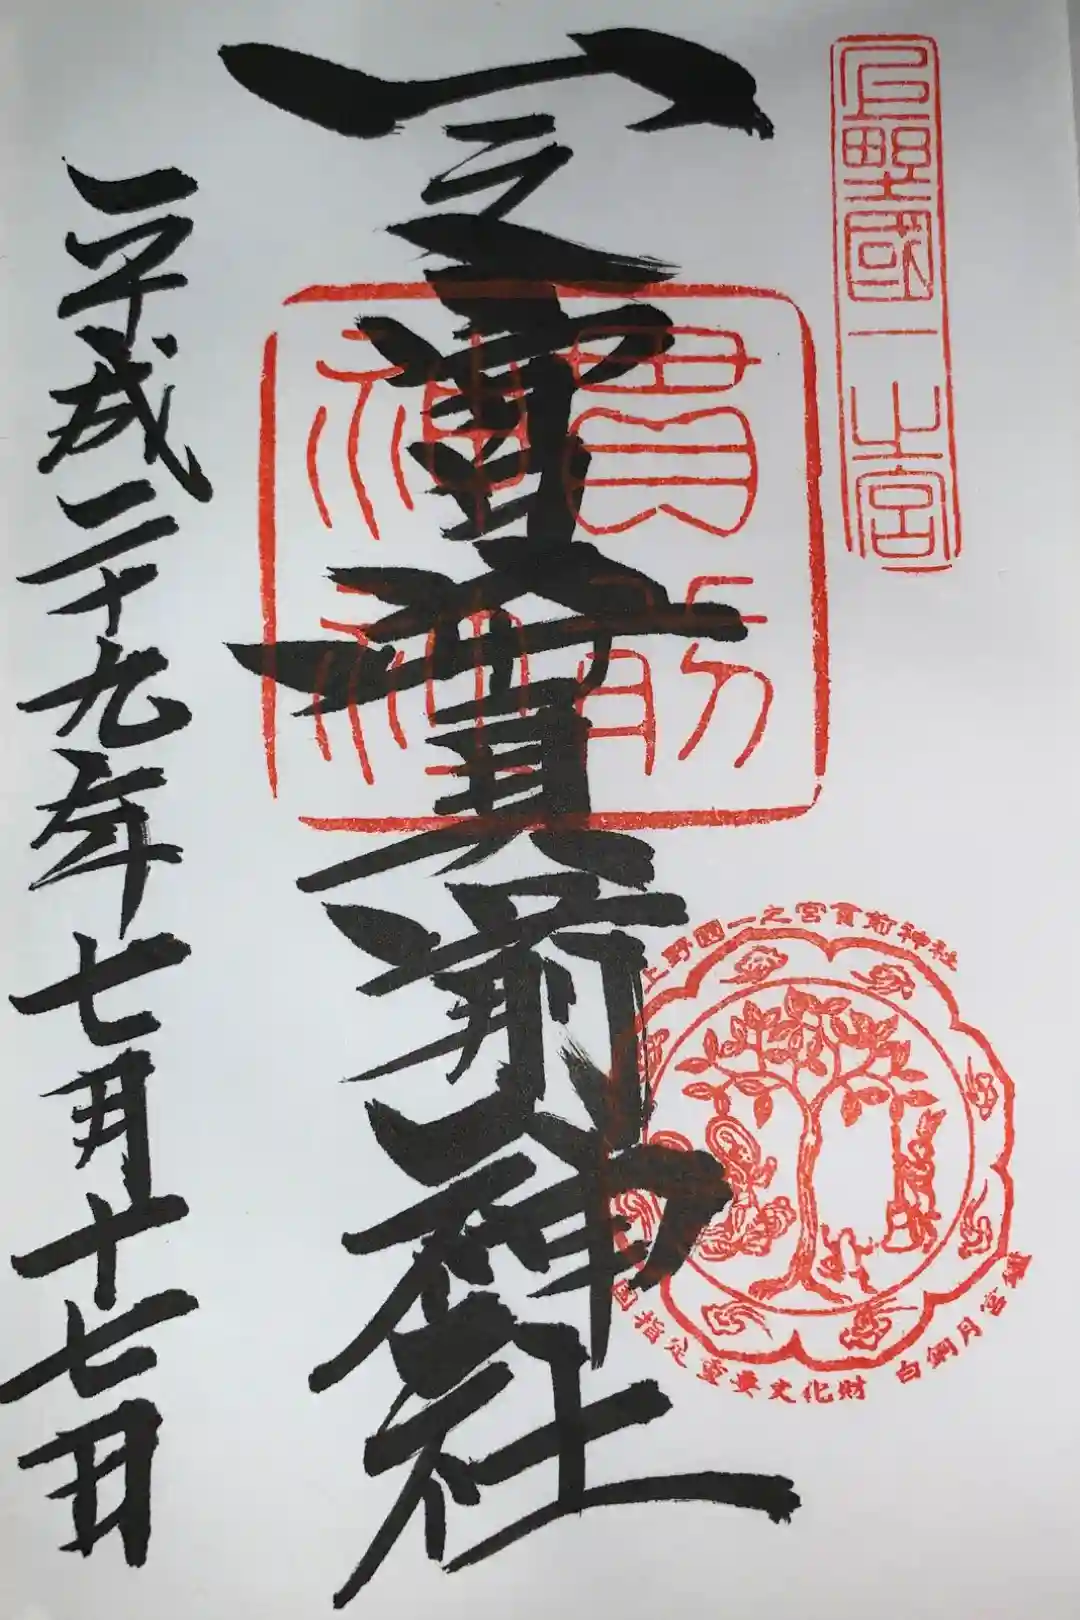 上野國一之宮
一之宮貫前神社
貫前
神社
上野國一之宮貫前神社
國指定重要文化財 白銅月宮鑑
平成二十九年七月十七日